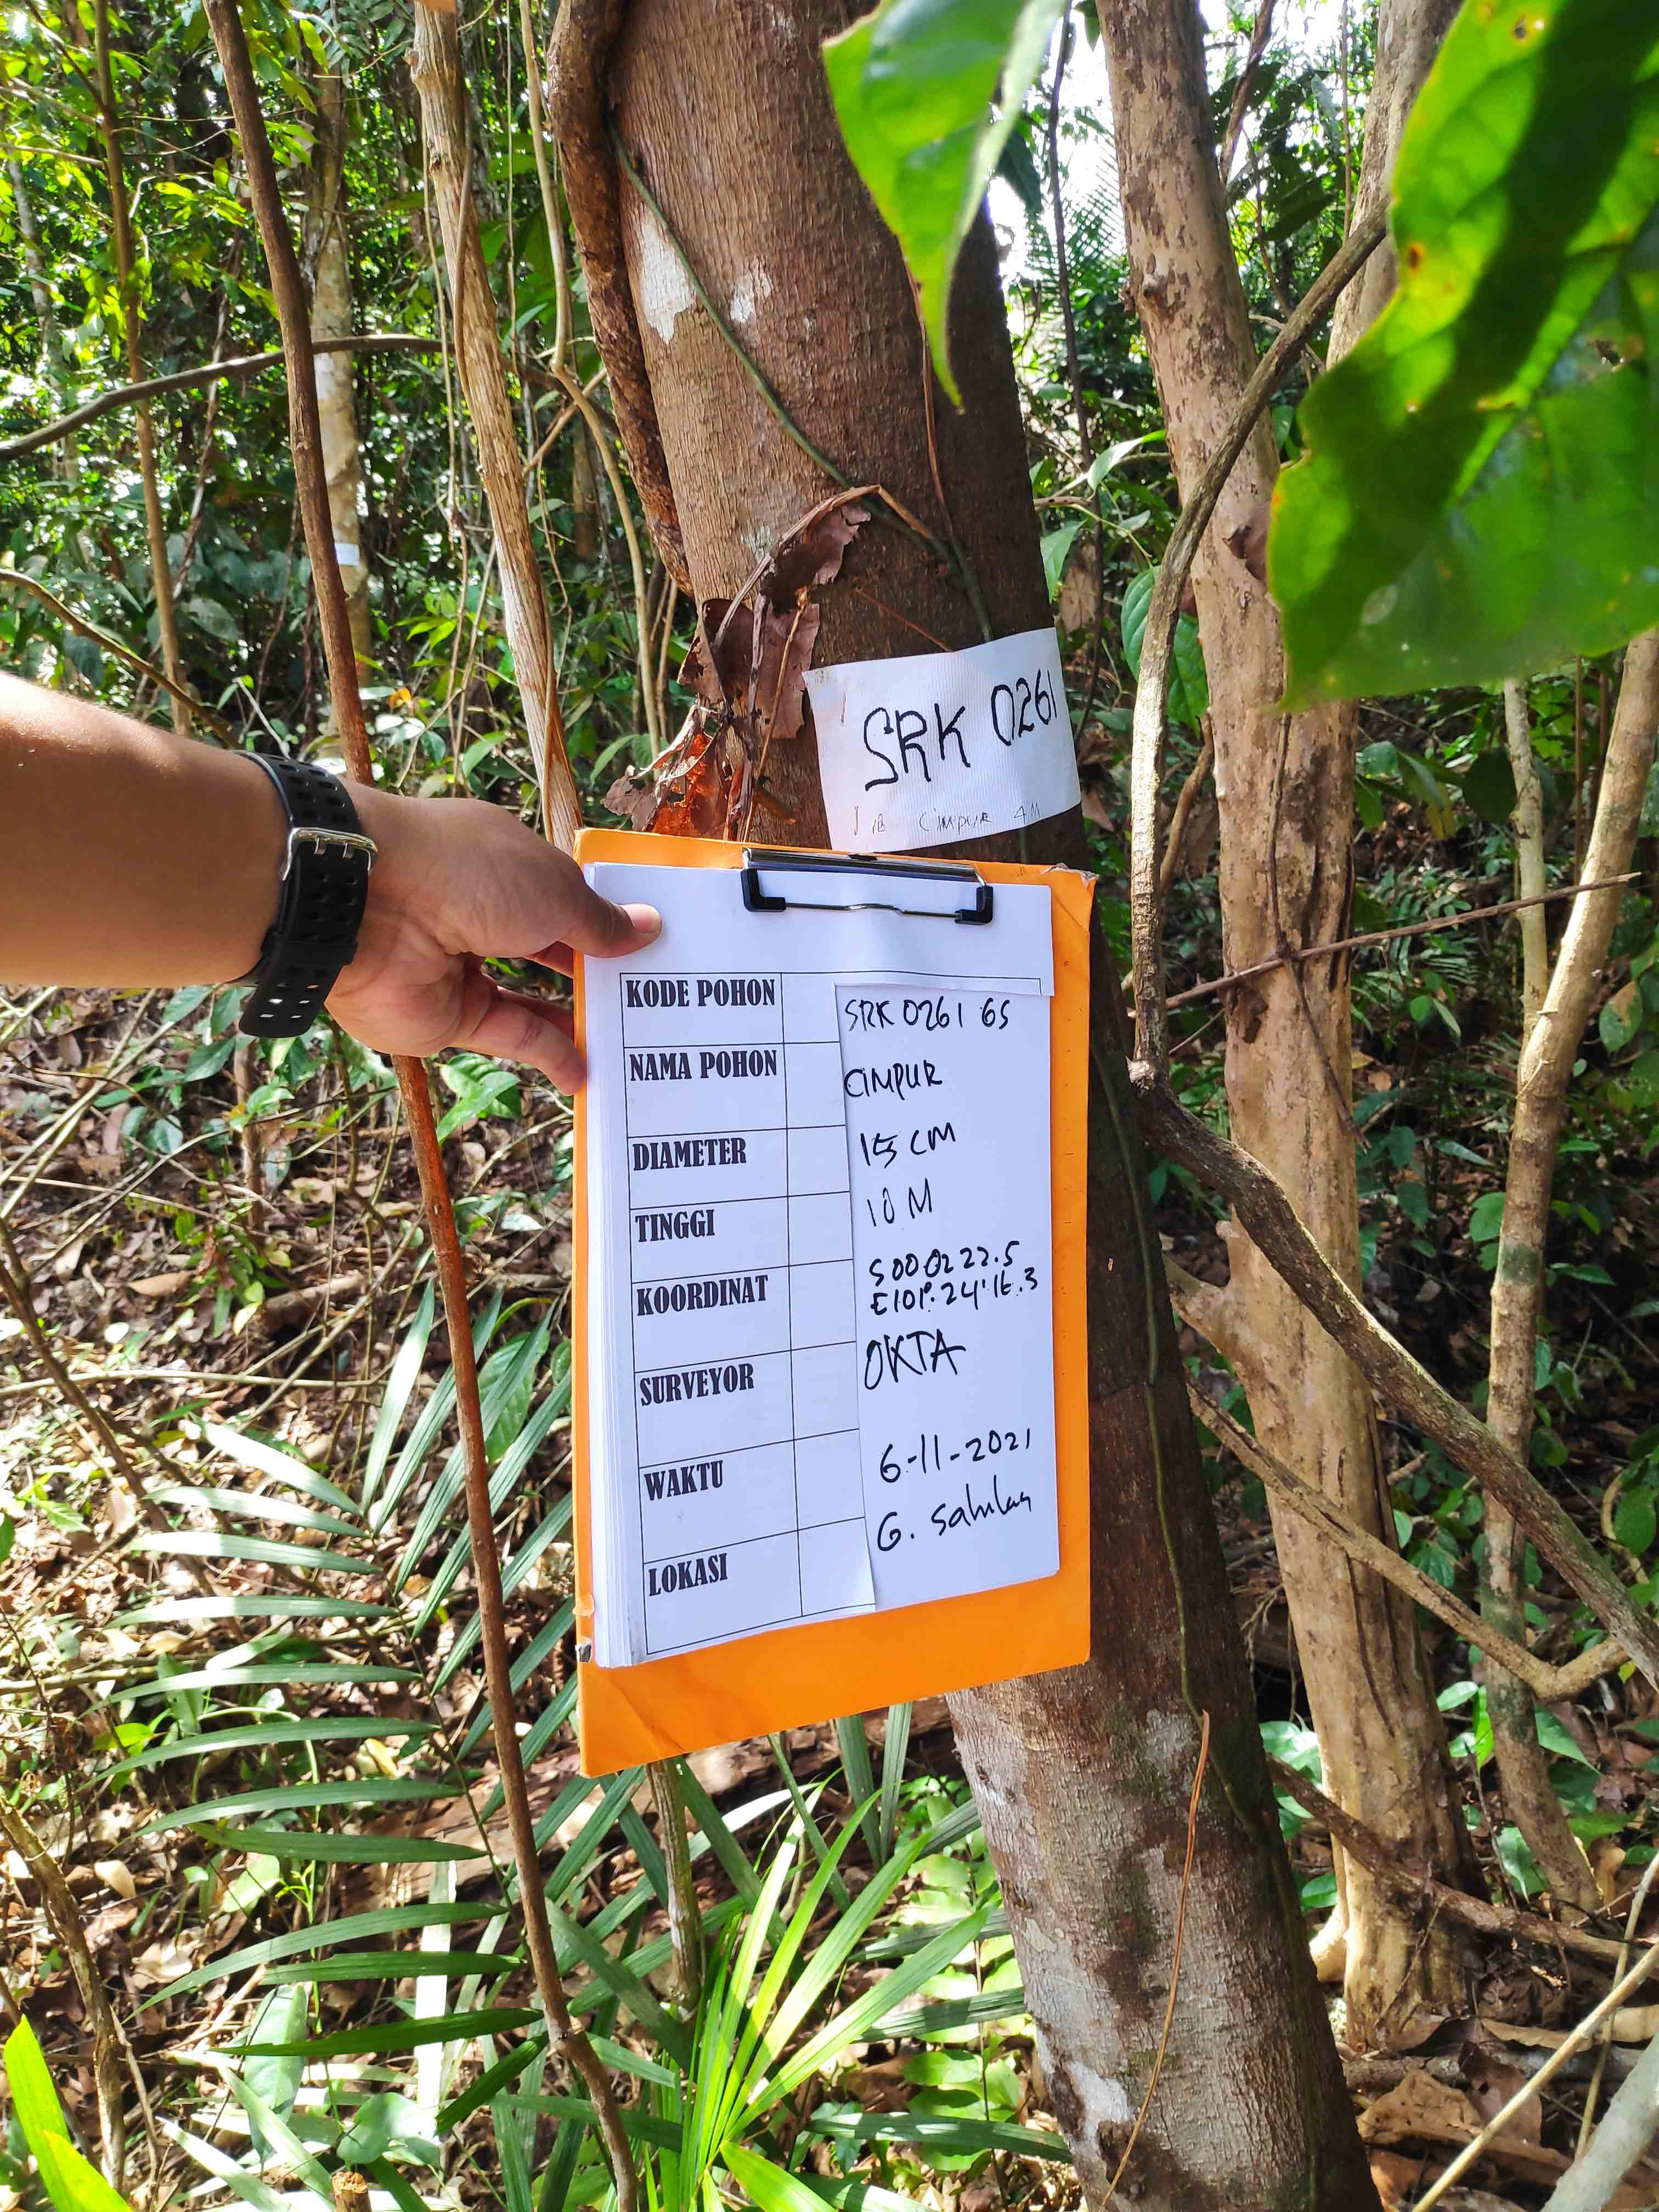 SRK 0261
18 CIMPUR 4M
KODE POHON SRK 0261 GS
NAMA POHON CIMPUR
DIAMETER 15 CM
TINGGI 10 M
KOORDINAT S 00 02 22.5
E101°.24'16.3
SURVEYOR OKTA
WAKTU 6-11-2021
LOKASI G. Sahilan